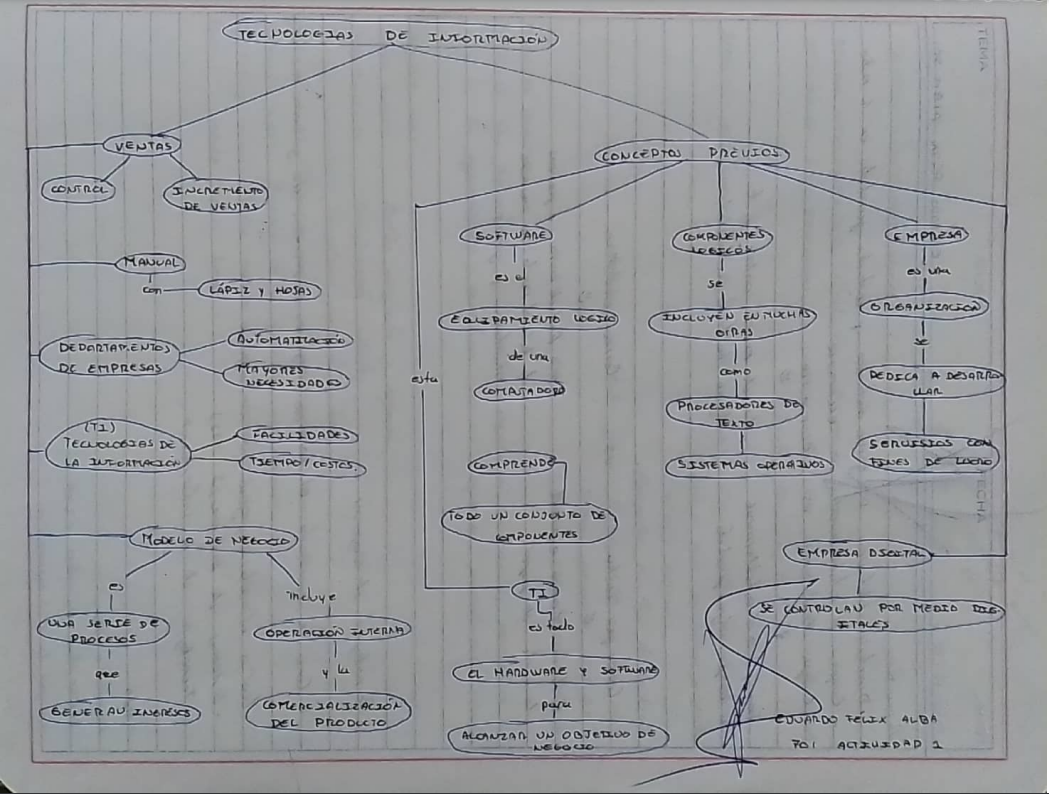 TECNOLOGIAS DE INFORMACIÓN
VENTAS
CONTROL
INCREMENTO
DE VENTAS
MANUAL
con
LÁPIZ Y HOJAS
DEPARTAMENTOS
DE EMPRESAS
AUTOMATIZACIÓN
MAYORES
NECESIDADES
(TI)
TECNOLOGIAS DE
LA INFORMACIÓN
FACILIDADES
TIEMPO/COSTOS.
MODELO DE NEGOCIO
es
UNA SERIE DE
PROCESOS
que
GENERAN INGRESOS
incluye
OPERACIÓN INTERNA
y la
COMERCIALIZACIÓN
DEL PRODUCTO
CONCEPTOS PREVIOS
SOFTWARE
es el
EQUIPAMIENTO LOGICO
de una
COMPRENDE
TODO UN CONJUNTO DE
COMPONENTES
esta
TI
es todo
EL HARDWARE Y SOFTWARE
para
ALCANZAR UN OBJETIVO DE
NEGOCIO
COMPONENTES
LOGICOS
se
INCLUYEN EN MUCHAS
OTRAS
como
PROCESADORES DE
TEXTO
SISTEMAS OPERATIVOS
EMPRESA
es una
ORGANIZACIÓN
se
DEDICA A DESARRO
LLAR
SERVISIOS CON
FINES DE LUCRO
EMPRESA DIGITAL
SE CONTROLAN POR MEDIO DIG-
ITALES
EDUARDO FÉLIX ALBA
701 ACTIVIDAD 1
TEMA
FECHA